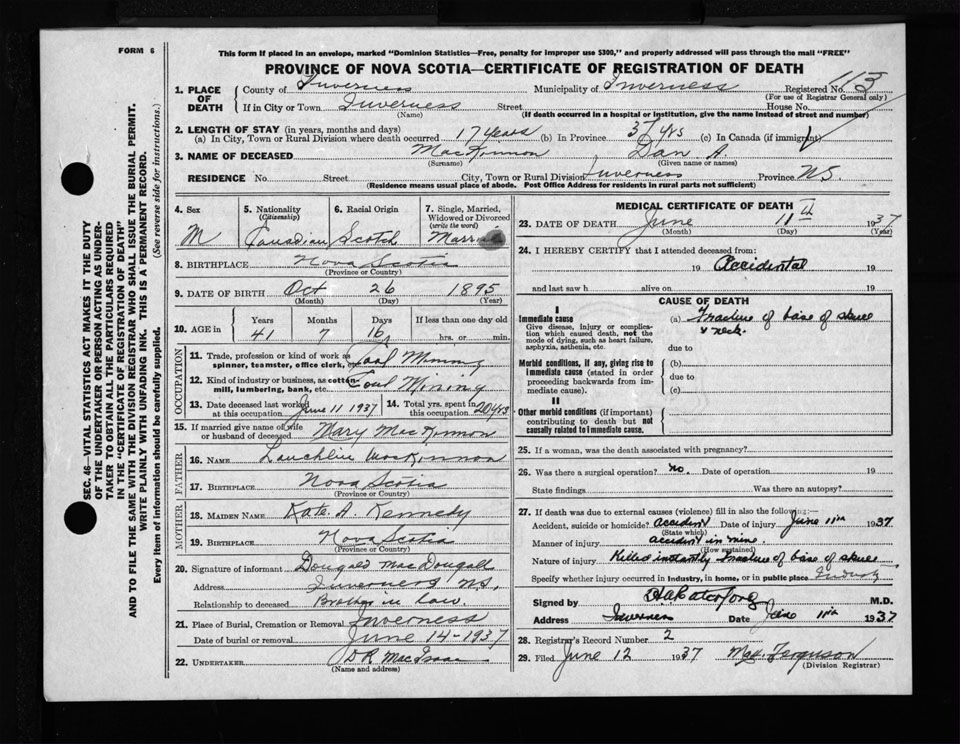 FORM 6
This form if placed in an envelope, marked "Dominion Statistics—Free, penalty for improper use $300," and properly addressed will pass through the mail "FREE"
PROVINCE OF NOVA SCOTIA—CERTIFICATE OF REGISTRATION OF DEATH
SEC. 46—VITAL STATISTICS ACT MAKES IT THE DUTY
OF THE UNDERTAKER OR PERSON ACTING AS UNDER-
TAKER TO OBTAIN ALL THE PARTICULARS REQUIRED
IN THE "CERTIFICATE OF REGISTRATION OF DEATH" AND
TO FILE THE SAME WITH THE DIVISION REGISTRAR WHO SHALL ISSUE THE BURIAL PERMIT.
WRITE PLAINLY WITH UNFADING INK. THIS IS A PERMANENT RECORD.
Every item of information should be carefully supplied. (See reverse side for instructions.)
1. PLACE OF DEATH
County of Inverness Municipality of Inverness Registered No. 113
(For use of Registrar General only)
If in City or Town Inverness Street House No.
(Name) (If death occurred in a hospital or institution, give the name instead of street and number)
2. LENGTH OF STAY (in years, months and days)
(a) In City, Town or Rural Division where death occurred 17 years (b) In Province 37 yrs (c) In Canada (if immigrant)
3. NAME OF DECEASED MacKinnon Dan A.
(Surname) (Given name or names)
RESIDENCE No. Street City, Town or Rural Division Inverness Province N.S.
(Residence means usual place of abode. Post Office Address for residents in rural parts not sufficient)
4. Sex M
5. Nationality (Citizenship) Canadian
6. Racial Origin Scotch
7. Single, Married, Widowed or Divorced (write the word) Married
8. BIRTHPLACE Nova Scotia
(Province or Country)
9. DATE OF BIRTH Oct 26 1895
(Month) (Day) (Year)
10. AGE in Years 41 Months 7 Days 16 If less than one day old hrs. or min.
OCCUPATION
11. Trade, profession or kind of work as spinner, teamster, office clerk, Coal Mining
12. Kind of industry or business, as cotton mill, lumbering, bank, etc. Coal Mining
13. Date deceased last worked at this occupation June 11 1937
14. Total yrs. spent in this occupation 20 yrs
15. If married give name of wife or husband of deceased Mary MacKinnon
FATHER
16. NAME Lauchlin MacKinnon
17. BIRTHPLACE Nova Scotia
(Province or Country)
MOTHER
18. MAIDEN NAME Kate A. Kennedy
19. BIRTHPLACE Nova Scotia
(Province or Country)
20. Signature of informant Dougald MacDougall
Address Inverness N.S.
Relationship to deceased Brother in law.
21. Place of Burial, Cremation or Removal Inverness
Date of burial or removal June 14-1937
22. UNDERTAKER D R MacIsaac
(Name and address)
MEDICAL CERTIFICATE OF DEATH
23. DATE OF DEATH June 11th 1937
(Month) (Day) (Year)
24. I HEREBY CERTIFY that I attended deceased from:
19 Accidental 19
and last saw h alive on 19
CAUSE OF DEATH
I
Immediate cause (a) Fracture of base of skull
& neck.
Give disease, injury or complication which caused death, not the mode of dying, such as heart failure, asphyxia, asthenia, etc.
due to
Morbid conditions, if any, giving rise to immediate cause (stated in order proceeding backwards from immediate cause).
(b)
due to
(c)
II
Other morbid conditions (if important) contributing to death but not causally related to immediate cause.
25. If a woman, was the death associated with pregnancy?
26. Was there a surgical operation? No. Date of operation 19
State findings Was there an autopsy?
27. If death was due to external causes (violence) fill in also the following:—
Accident, suicide or homicide? Accident Date of injury June 11th 1937
(State which)
Manner of injury accident in mine.
(How sustained)
Nature of injury Killed instantly fracture of base of skull
Specify whether injury occurred in industry, in home, or in public place Industry
Signed by M.D.
Address Inverness Date June 11th 1937
28. Registrar's Record Number 2
29. Filed June 12 1937 Ferguson
(Division Registrar)